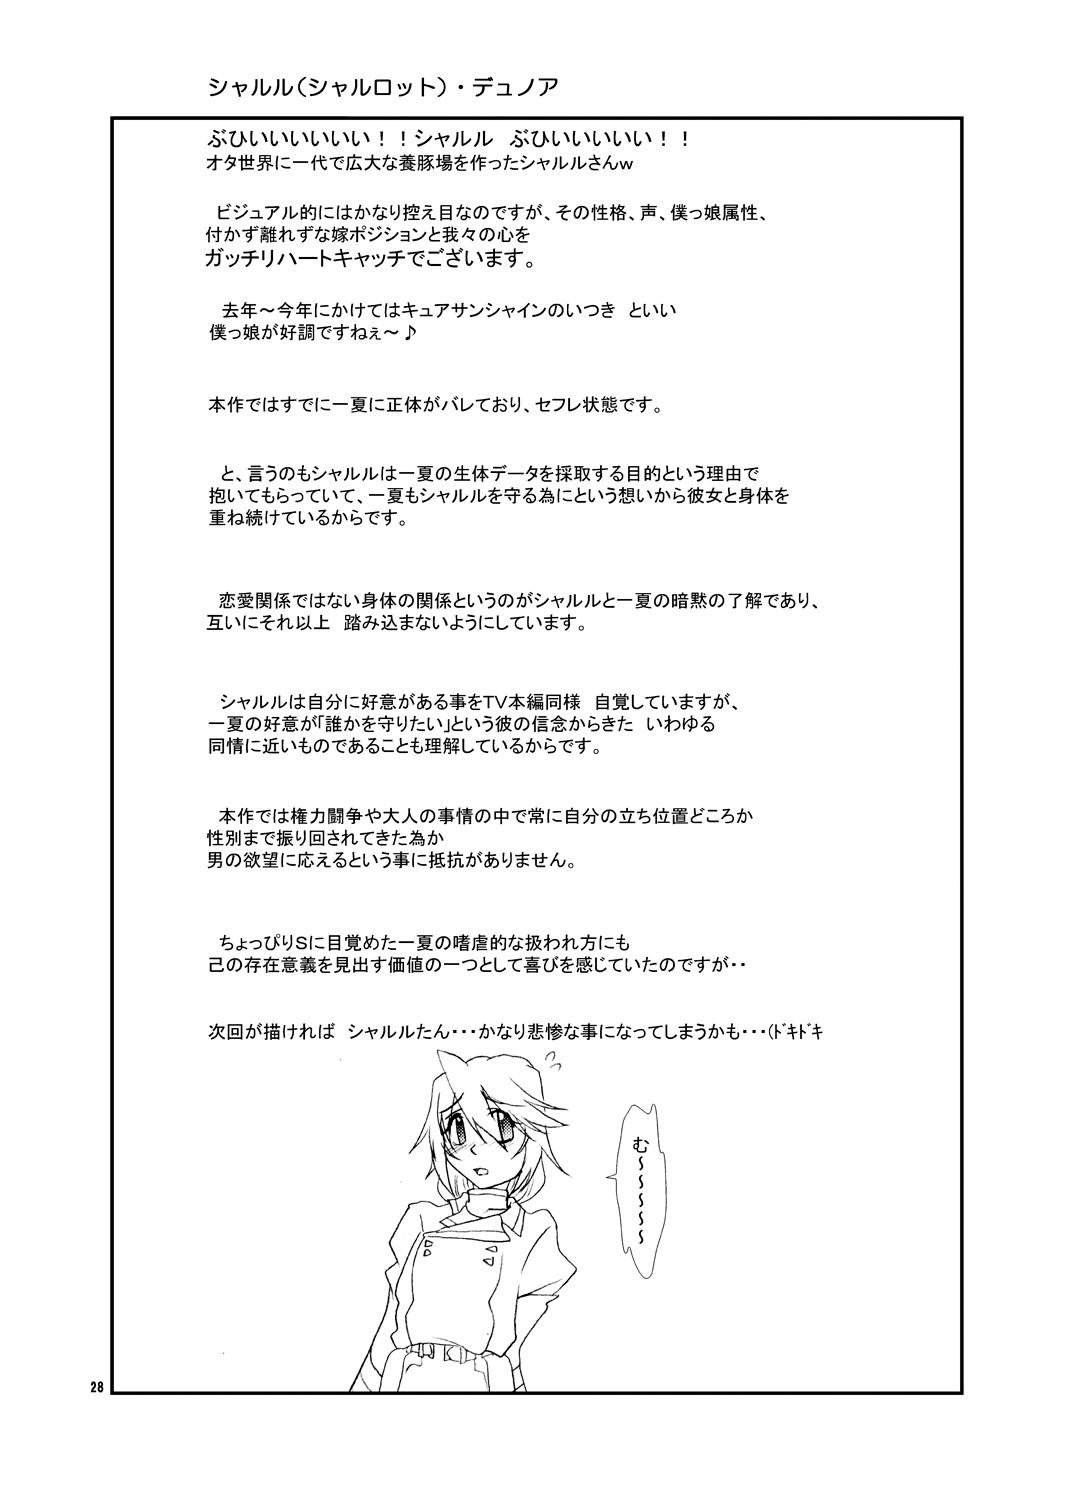 シャルル(シャルロット)・デュノア
ぶひいいいいいい！！シャルル　ぶひいいいいい！！
オタ世界に一代で広大な養豚場を作ったシャルルさんw
ビジュアル的にはかなり控え目なのですが、その性格、声、僕っ娘属性、
付かず離れずな嫁ポジションと我々の心を
ガッチリハートキャッチでございます。
去年～今年にかけてはキュアサンシャインのいつき　といい
僕っ娘が好調ですねぇ～♪
本作ではすでに一夏に正体がバレており、セフレ状態です。
と、言うのもシャルルは一夏の生体データを採取する目的という理由で
抱いてもらっていて、一夏もシャルルを守る為にという想いから彼女と身体を
重ね続けているからです。
恋愛関係ではない身体の関係というのがシャルルと一夏の暗黙の了解であり、
互いにそれ以上　踏み込まないようにしています。
シャルルは自分に好意がある事をTV本編同様　自覚していますが、
一夏の好意が「誰かを守りたい」という彼の信念からきた　いわゆる
同情に近いものであることも理解しているからです。
本作では権力闘争や大人の事情の中で常に自分の立ち位置どころか
性別まで振り回されてきた為か
男の欲望に応えるという事に抵抗がありません。
ちょっぴりSに目覚めた一夏の嗜虐的な扱われ方にも
己の存在意義を見出す価値の一つとして喜びを感じていたのですが・・
次回が描ければ　シャルルたん・・・かなり悲惨な事になってしまうかも・・・(ﾄﾞｷﾄﾞｷ
む～～～～～
28